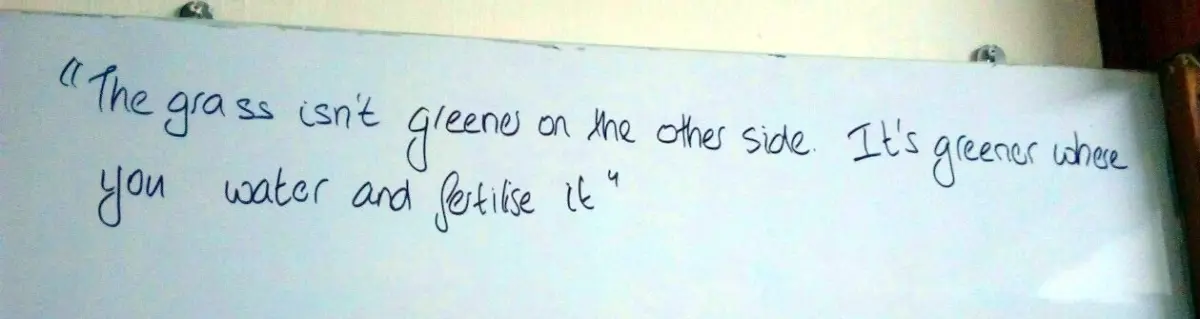 "The grass isn't greener on the other side. It's greener where
you water and fertilise it"